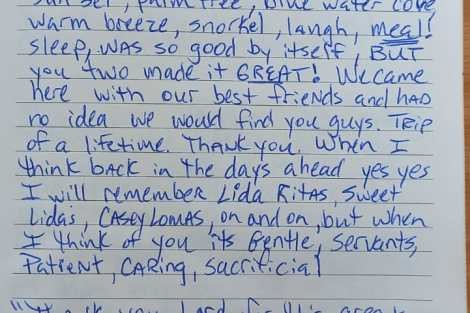 sun set, palm tree, blue water cove
warm breeze, snorkel, laugh, meal!
sleep, was so good by itself, BUT
you two made it GREAT! We came
here with our best friends and HAD
no idea we would find you guys. TRIP
of a lifetime. Thank you. When I
think back in the days ahead yes yes
I will remember Lida Ritas, Sweet
Lidas, CASEY LOMAS, on and on, but when
I think of you its Gentle, Servants,
Patient, CARing, Sacrificial